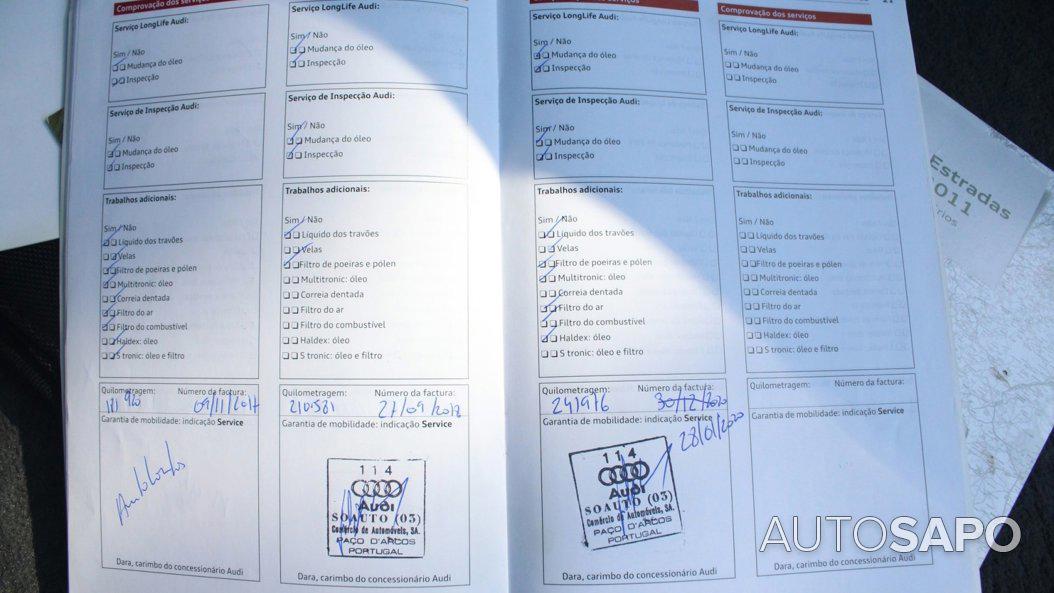 Comprovação dos serviços
Serviço LongLife Audi:
Sim / Não
Mudança do óleo
Inspecção
Serviço de Inspecção Audi:
Sim / Não
Mudança do óleo
Inspecção
Trabalhos adicionais:
Sim / Não
Líquido dos travões
Velas
Filtro de poeiras e pólen
Multitronic: óleo
Correia dentada
Filtro do ar
Filtro do combustível
Haldex: óleo
S tronic: óleo e filtro
Quilometragem: Número da factura:
181 920 09/11/2017
Garantia de mobilidade: indicação Service
Dara, carimbo do concessionário Audi
Serviço LongLife Audi:
Sim / Não
Mudança do óleo
Inspecção
Serviço de Inspecção Audi:
Sim / Não
Mudança do óleo
Inspecção
Trabalhos adicionais:
Sim / Não
Líquido dos travões
Velas
Filtro de poeiras e pólen
Multitronic: óleo
Correia dentada
Filtro do ar
Filtro do combustível
Haldex: óleo
S tronic: óleo e filtro
Quilometragem: Número da factura:
210581 27/09/2018
Garantia de mobilidade: indicação Service
114
Audi
SOAUTO (03)
Comércio de Automóveis, SA.
PAÇO D'ARCOS
PORTUGAL
Dara, carimbo do concessionário Audi
Serviço LongLife Audi:
Sim / Não
Mudança do óleo
Inspecção
Serviço de Inspecção Audi:
Sim / Não
Mudança do óleo
Inspecção
Trabalhos adicionais:
Sim / Não
Líquido dos travões
Velas
Filtro de poeiras e pólen
Multitronic: óleo
Correia dentada
Filtro do ar
Filtro do combustível
Haldex: óleo
S tronic: óleo e filtro
Quilometragem: Número da factura:
241976 30/12/2020
Garantia de mobilidade: indicação Service
28/01/2020
114
Audi
SOAUTO (03)
Comércio de Automóveis, SA.
PAÇO D'ARCOS
PORTUGAL
Dara, carimbo do concessionário Audi
Comprovação dos serviços
Serviço LongLife Audi:
Sim / Não
Mudança do óleo
Inspecção
Serviço de Inspecção Audi:
Sim / Não
Mudança do óleo
Inspecção
Trabalhos adicionais:
Sim / Não
Líquido dos travões
Velas
Filtro de poeiras e pólen
Multitronic: óleo
Correia dentada
Filtro do ar
Filtro do combustível
Haldex: óleo
S tronic: óleo e filtro
Quilometragem: Número da factura:
Garantia de mobilidade: indicação Service
Dara, carimbo do concessionário Audi
Estradas
2011
AUTOSAPO